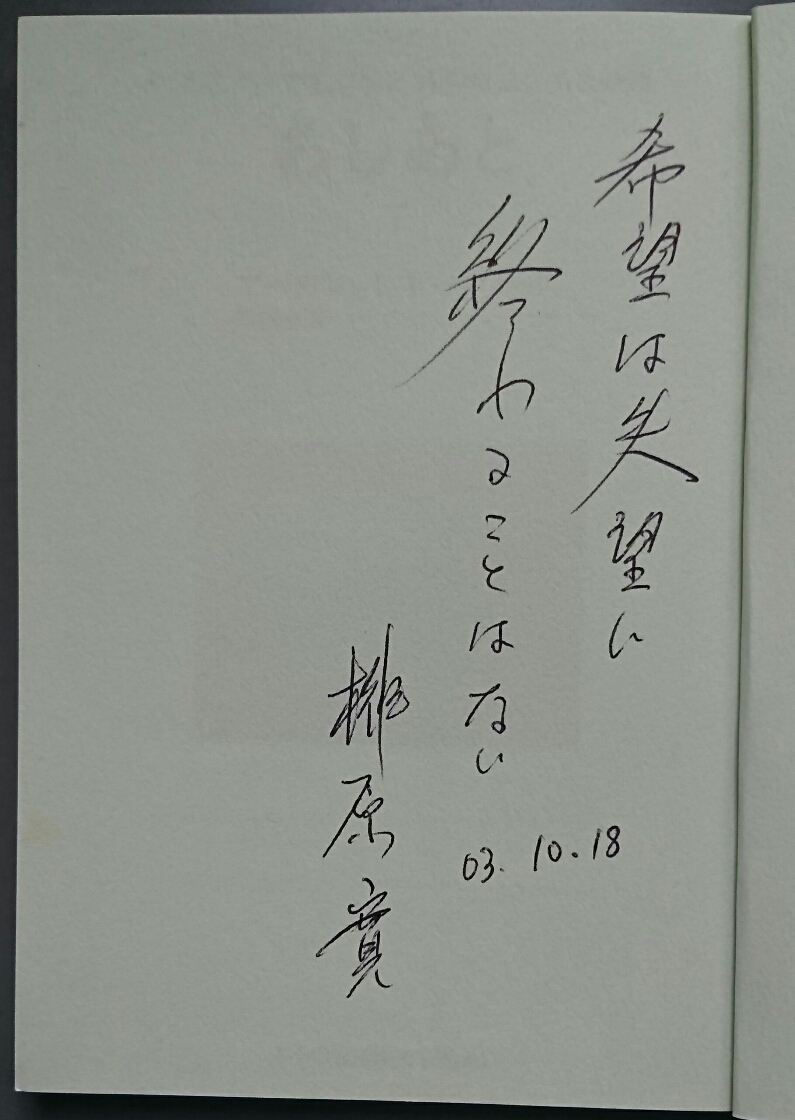 希望は失望に
終わることはない
榔原寛
03.10.18